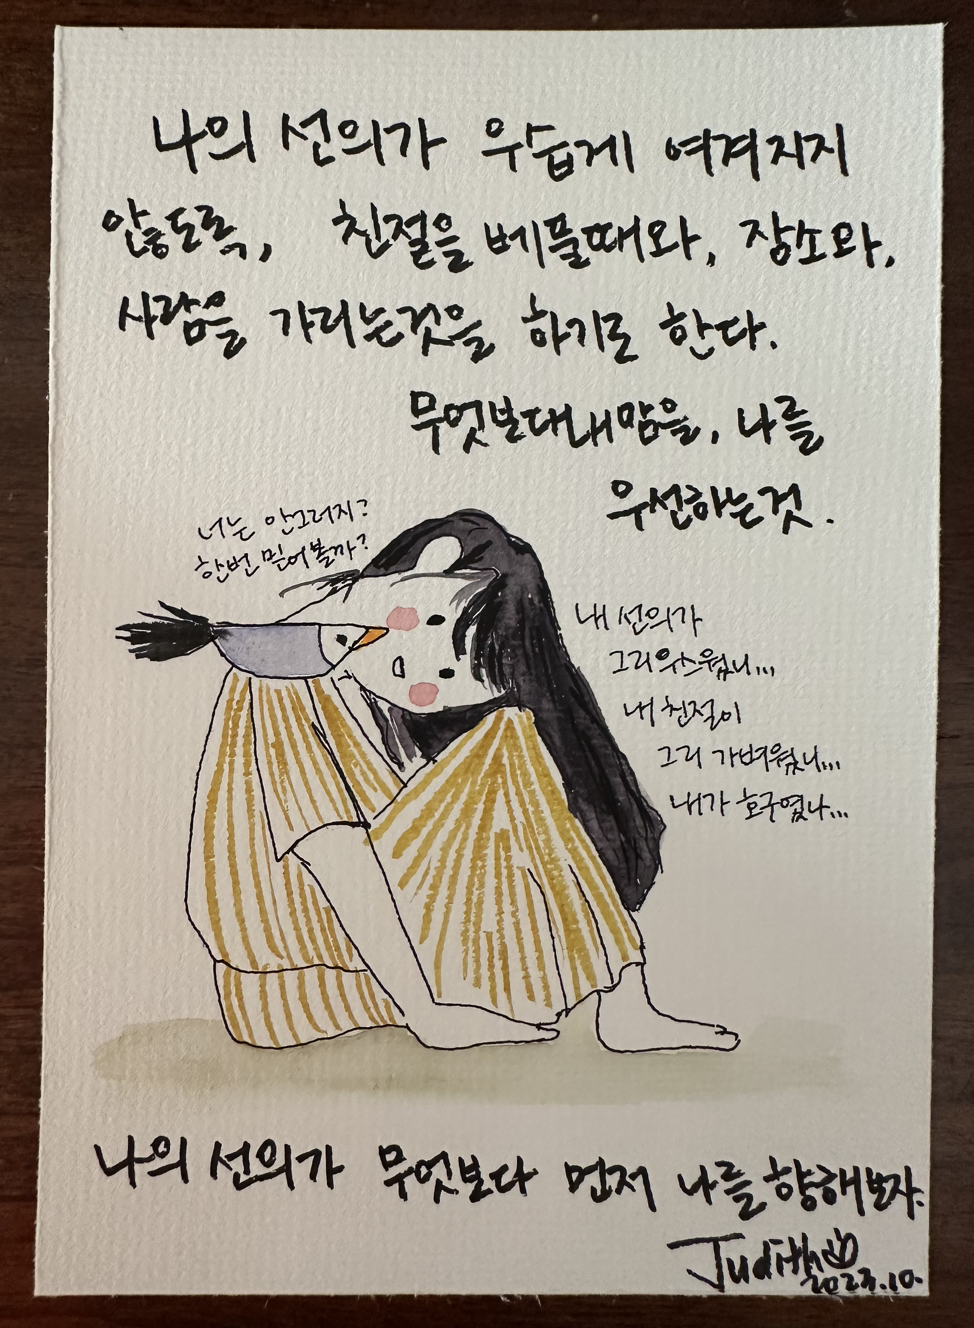 나의 선의가 우습게 여겨지지
않도록, 친절을 베풀때와, 장소와,
사람을 가리는것을 하기로 한다.
무엇보다내맘을, 나를
우선하는것.
너는 안그러지?
한번 믿어볼까?
내 선의가
그리 우스웠니...
내 친절이
그리 가벼웠니...
내가 호구였나...
나의 선의가 무엇보다 먼저 나를향해보자.
Judith
2023.10.